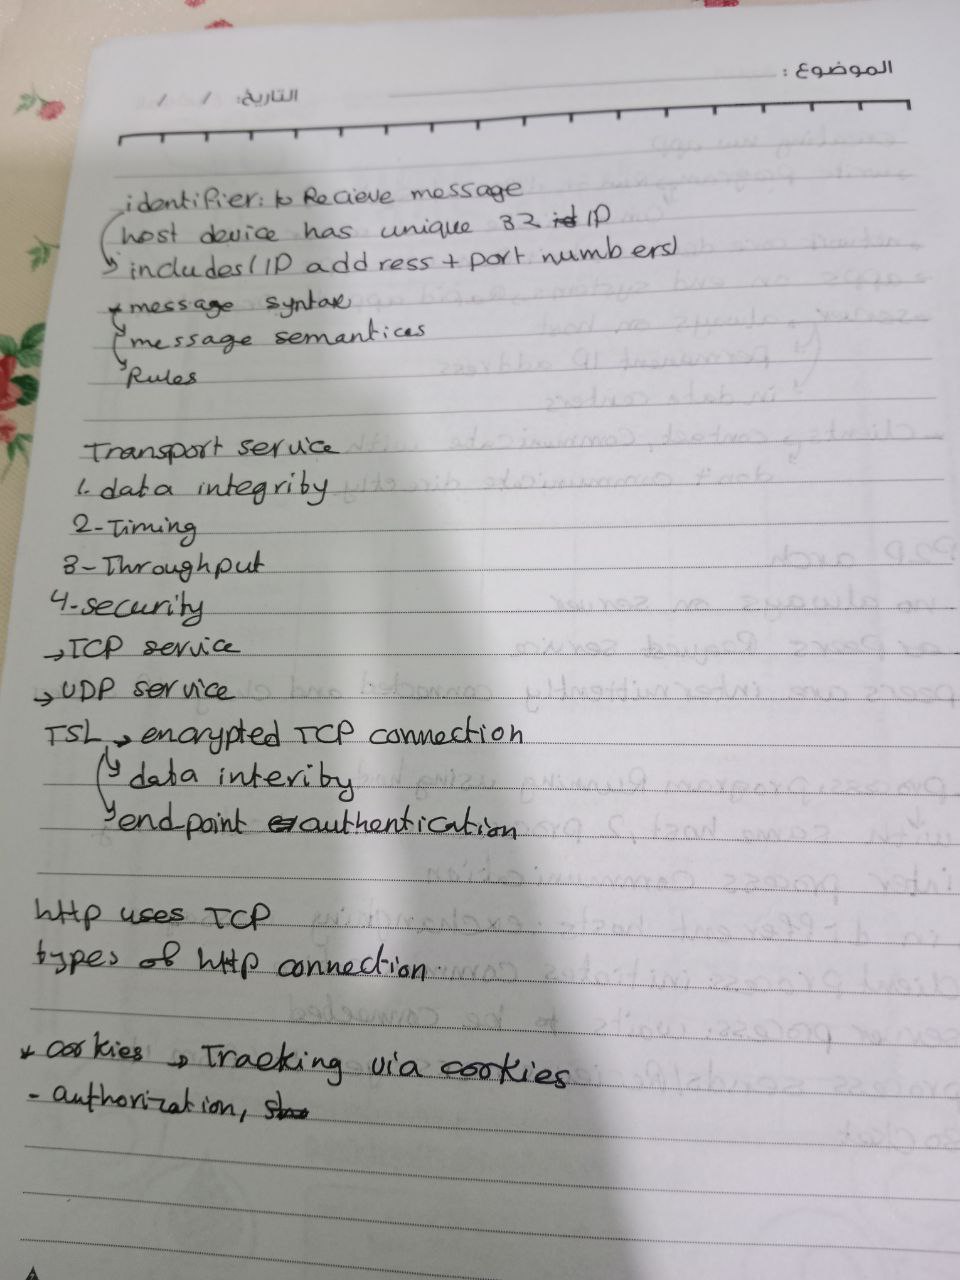 الموضوع :
التاريخ: / /
identifier: to Recieve message
host device has unique 32 IP
includes (IP address + port numbers)
* message syntax
message semantices
Rules
Transport service
1. data integrity
2- Timing
3- Throughput
4- security
→ TCP service
→ UDP service
TSL → encrypted TCP connection
data interity
end-point authentication
http uses TCP
types of http connection
* cookies → Tracking via cookies
- authorization,